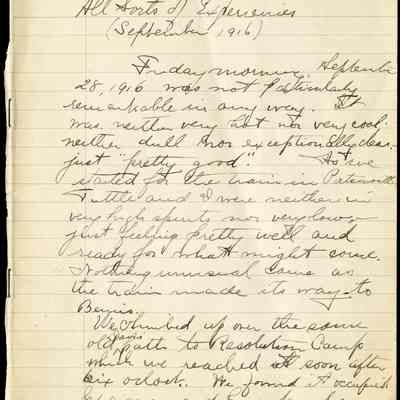 All Sorts of Experiences
(September 1916)
Friday morning, September
28, 1916 was not particularly
remarkable in any way. It
was neither very hot nor very cool
neither dull nor exceptionally clear,
just "pretty good". As we
started for the train in
Tuttle and I were neither in
very high spirits nor very low,
just feeling pretty well and
ready for what might come.
Nothing unusual came as
the train made its way to
Bemis.
We climbed up over the same
old Davis path to Resolution Camp
which we reached soon after
six o'clock. We found it occupied